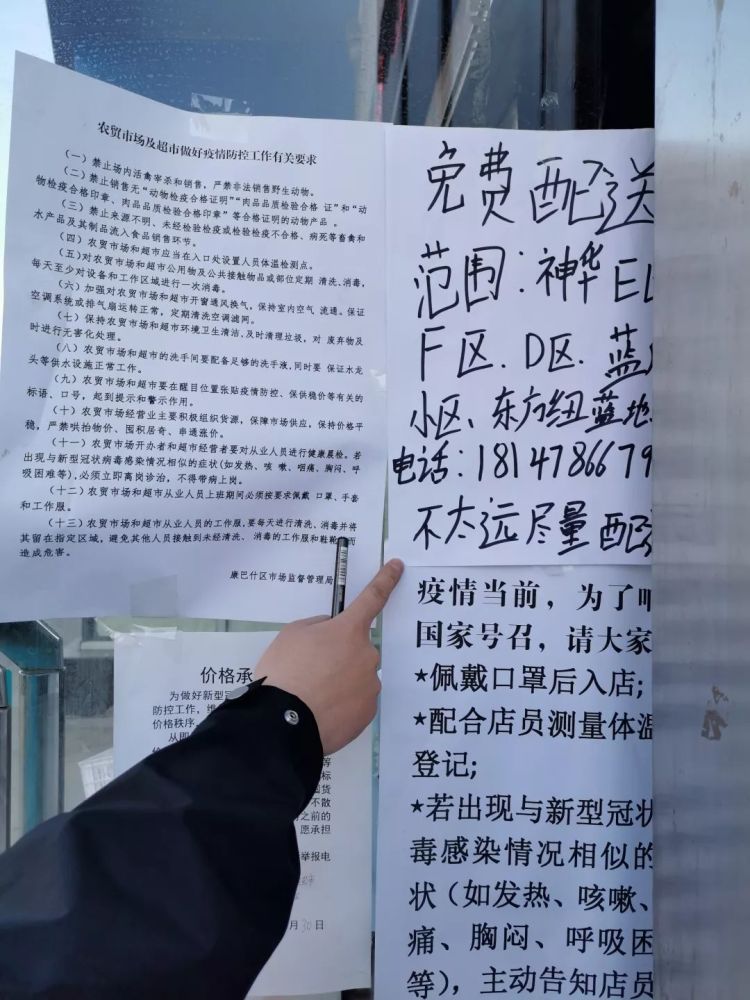 农贸市场及超市做好疫情防控工作有关要求
（一）禁止场内活禽宰杀和销售，严禁非法销售野生动物。
（二）禁止销售无“动物检疫合格证明”“肉品品质检验合格 证”和“动
物检疫合格印章、肉品品质检验合格印章”等合格证明的动物产品 。
（三）禁止来源不明、未经检验检疫或检验检疫不合格、病死等畜禽和
水产品及其制品流入食品销售环节。
（四）农贸市场和超市应当在入口处设置人员体温检测点。
（五）对农贸市场和超市公用物及公共接触物品或部位定期 清洗、消毒，
每天至少对设备和工作区域进行一次消毒。
（六）加强对农贸市场和超市开窗通风换气，保持室内空气 流通。保证
空调系统或排气扇运转正常，定期清洗空调滤网。
（七）保持农贸市场和超市环境卫生清洁,及时清理垃圾，对 废弃物及
时进行无害化处理。
（八）农贸市场和超市的洗手间要配备足够的洗手液,同时要 保证水龙
头等供水设施正常工作。
（九）农贸市场和超市要在醒目位置张贴疫情防控、保供稳价等有关的
标语、口号，起到提示和警示作用。
（十）农贸市场经营业主要积极组织货源，保障市场供应，保持价格平
稳，严禁哄抬物价、囤积居奇、串通涨价。
（十一）农贸市场开办者和超市经营者要对从业人员进行健康晨检。若
出现与新型冠状病毒感染情况相似的症状(如发热、咳 嗽、咽痛、胸闷、呼
吸困难等),必须立即离岗诊治，不得带病上岗。
（十二）农贸市场和超市从业人员上班期间必须按要求佩戴 口罩、手套
和工作服。
（十三）农贸市场和超市从业人员的工作服,要每天进行清洗、消毒并将
其留在指定区域，避免其他人员接触到未经清洗、 消毒的工作服和鞋靴而
造成危害。
康巴什区市场监督管理局
免费配送
范围：神华E
F区、D区、蓝
小区、东方纽蓝地
电话：1814786679
不太远尽量配
疫情当前，为了
国家号召，请大家
★佩戴口罩后入店;
★配合店员测量体温
登记;
★若出现与新型冠状
毒感染情况相似的
状（如发热、咳嗽、
痛、胸闷、呼吸困
等），主动告知店员
价格承
为做好新型
防控工作，维
价格秩序，
从即
等
标
囤货
不散
之前的
愿承担
举报电
月30日